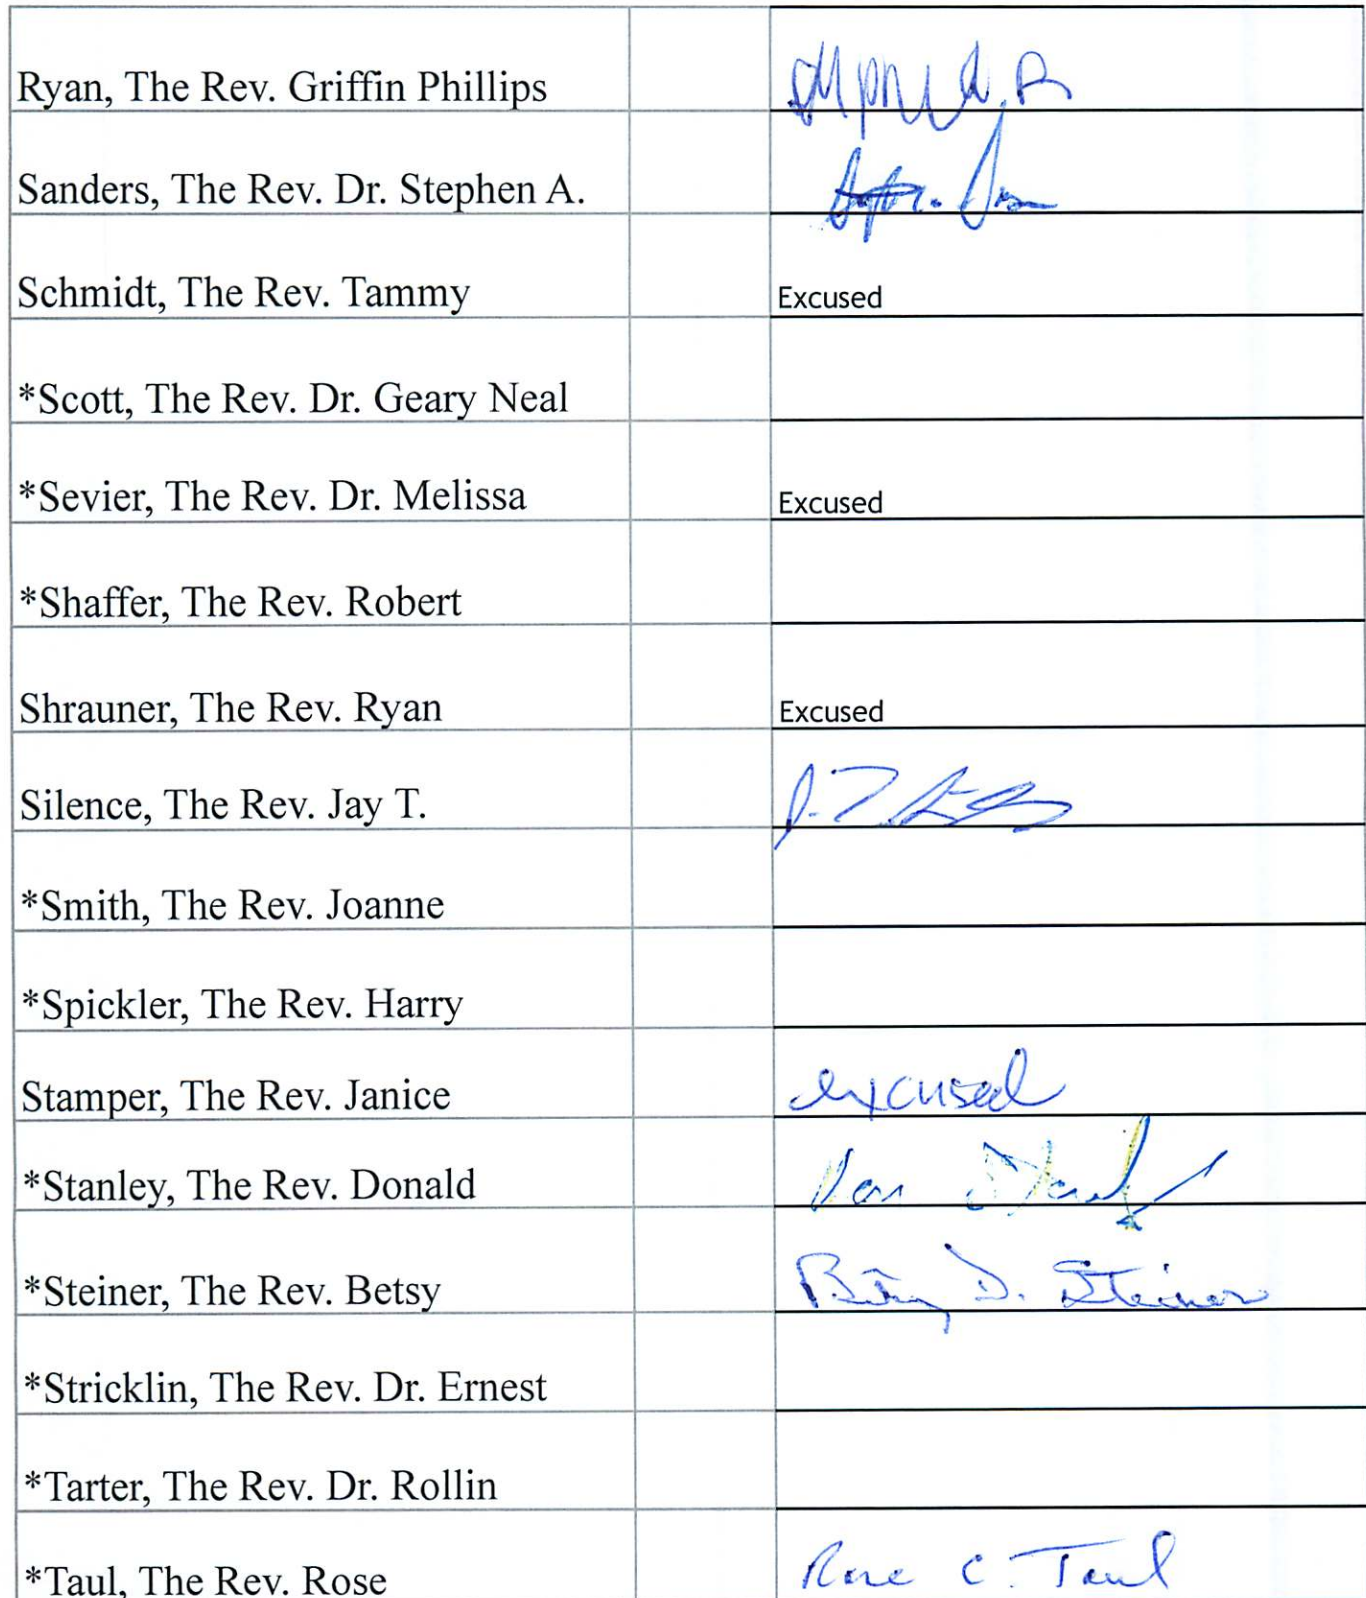 Ryan, The Rev. Griffin Phillips
Sanders, The Rev. Dr. Stephen A.
Schmidt, The Rev. Tammy Excused
*Scott, The Rev. Dr. Geary Neal
*Sevier, The Rev. Dr. Melissa Excused
*Shaffer, The Rev. Robert
Shrauner, The Rev. Ryan Excused
Silence, The Rev. Jay T.
*Smith, The Rev. Joanne
*Spickler, The Rev. Harry
Stamper, The Rev. Janice excused
*Stanley, The Rev. Donald Don Stanley
*Steiner, The Rev. Betsy Betsy D. Steiner
*Stricklin, The Rev. Dr. Ernest
*Tarter, The Rev. Dr. Rollin
*Taul, The Rev. Rose Rose C. Taul